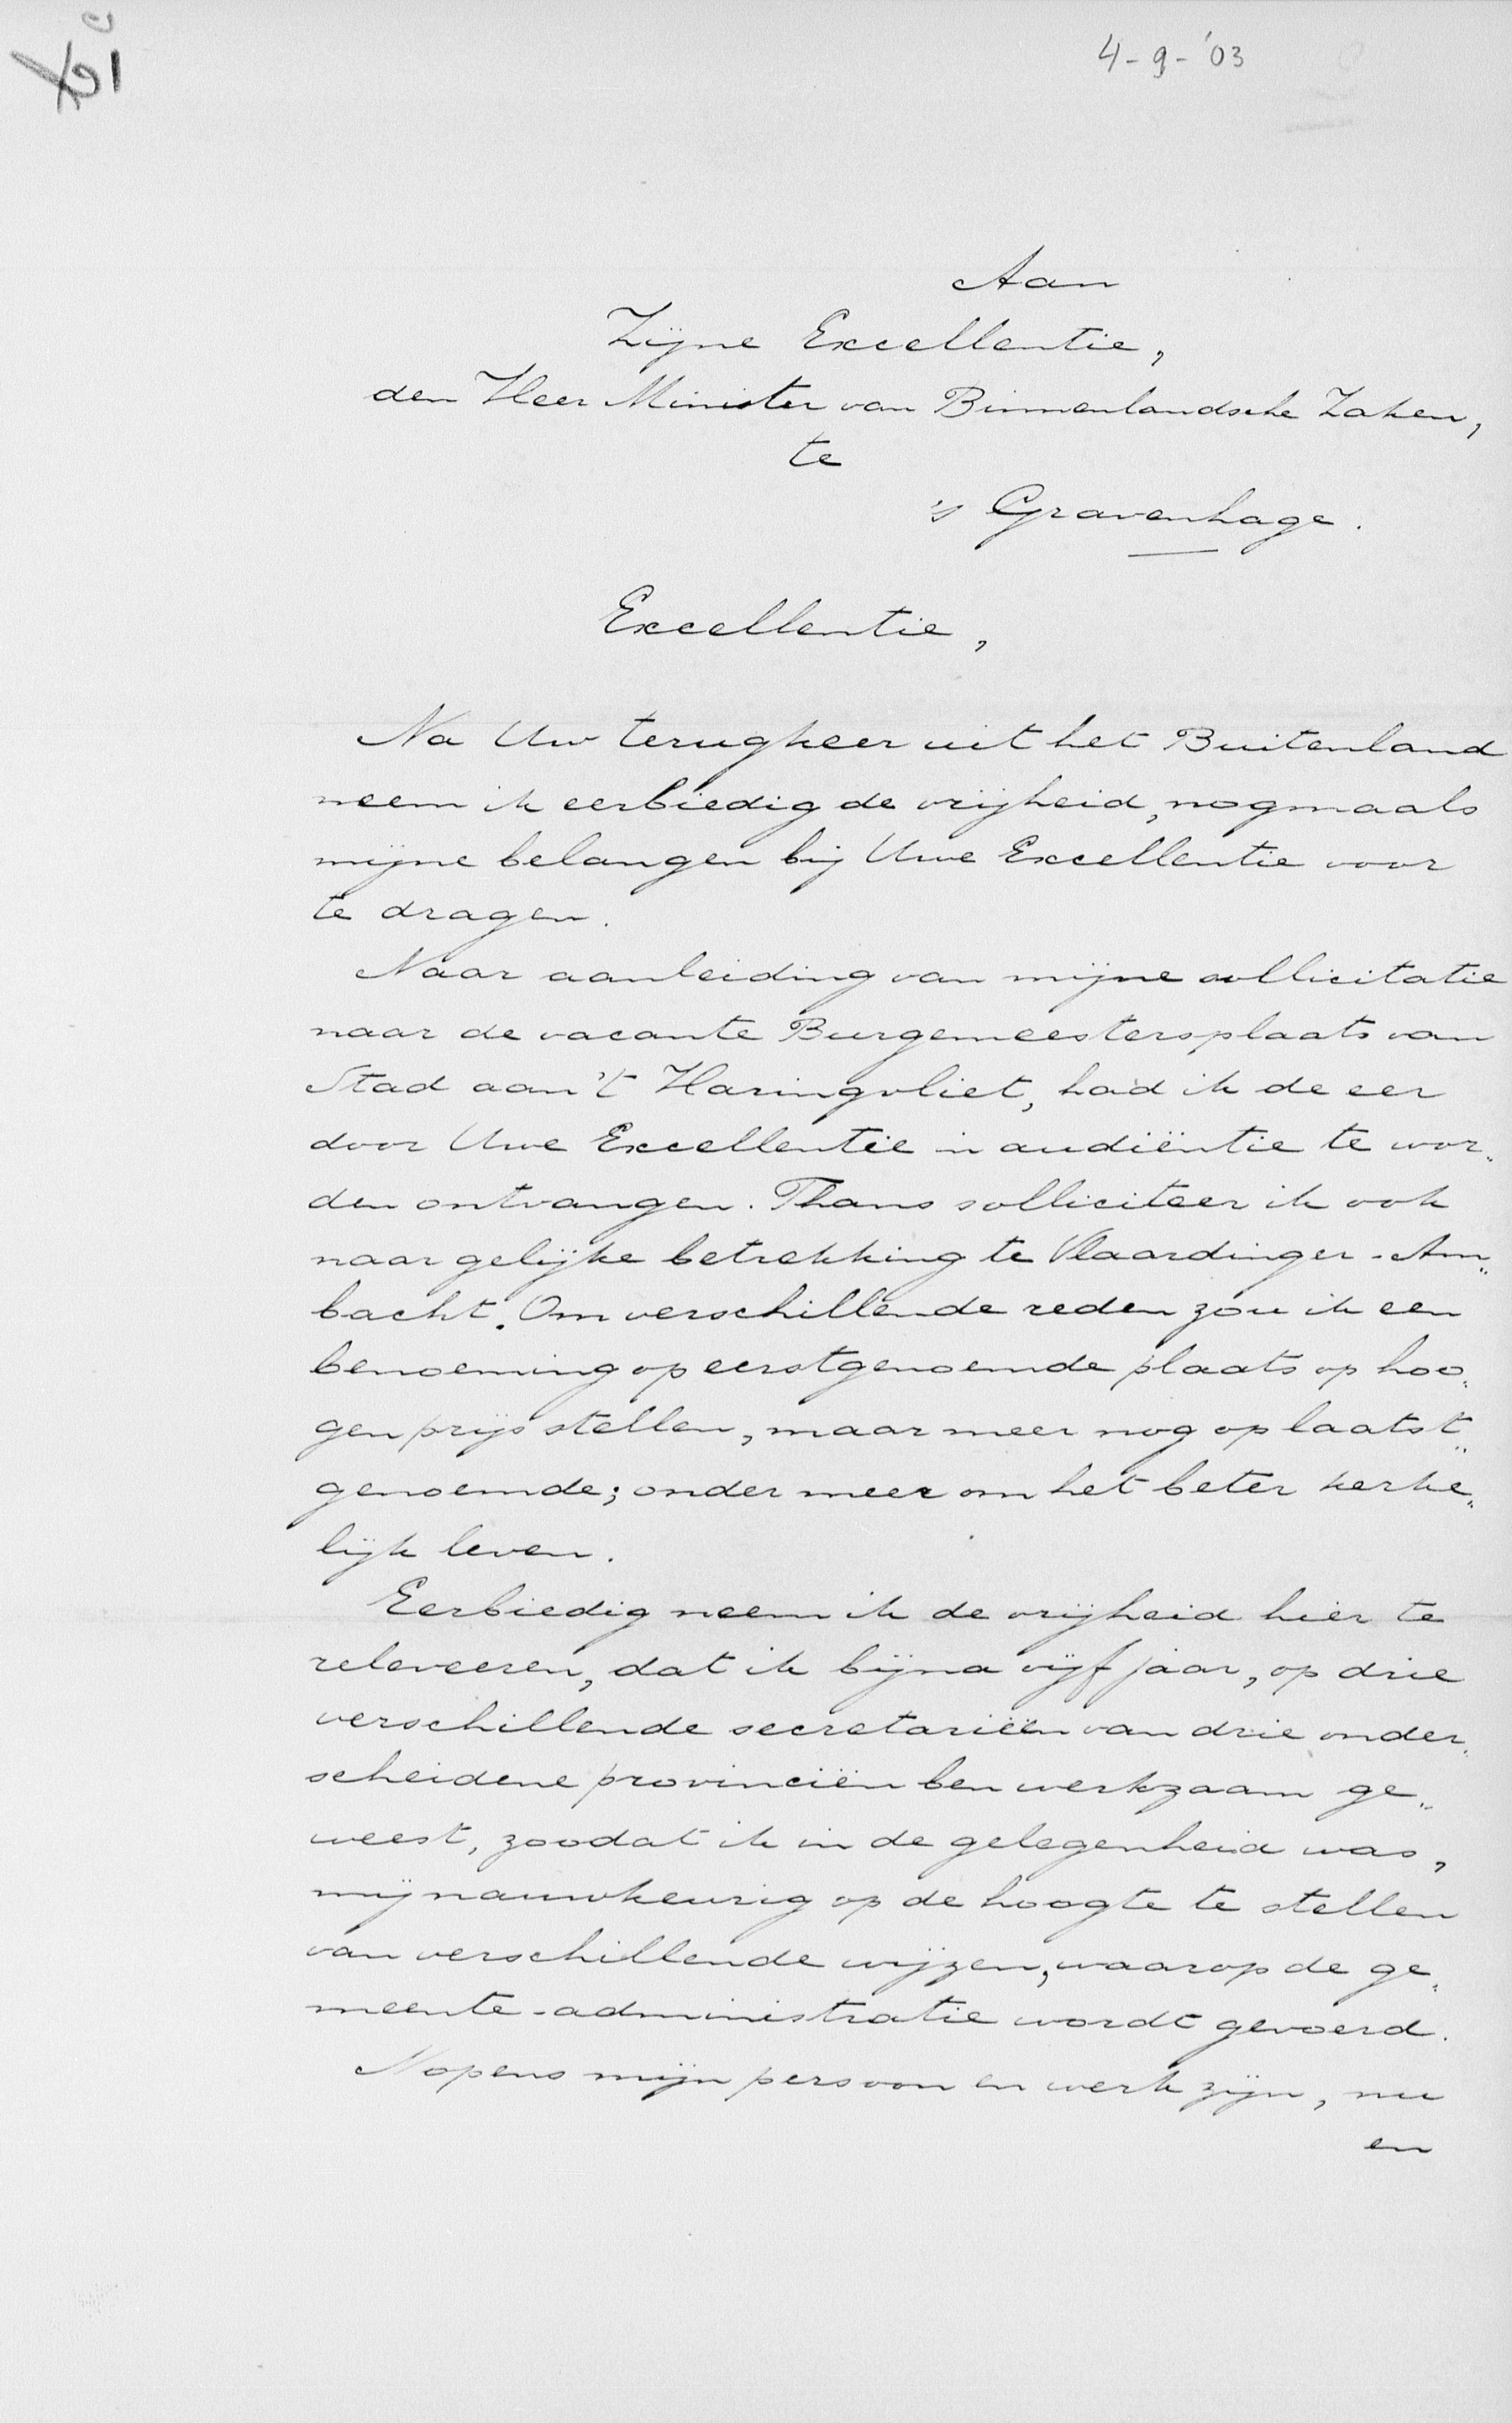 4-9-'03
Aan
Zijne Excellentie,
den Heer Minister van Binnenlandsche Zaken,
te
's Gravenhage.
Excellentie,
Na Uw terugkeer uit het Buitenland
neem ik eerbiedig de vrijheid, nogmaals
mijne belangen bij Uwe Excellentie voor
te dragen.
Naar aanleiding van mijne sollicitatie
naar de vacante Burgemeestersplaats van
Stad aan 't Haringvliet, had ik de eer
door Uwe Excellentie in audiëntie te wor„
den ontvangen. Thans solliciteer ik ook
naar gelijke betrekking te Vlaardinger-Am„
bacht. Om verschillende reden zou ik een
benoeming op eerstgenoemde plaats op hoo„
gen prijs stellen, maar meer nog op laatst„
genoemde; onder meer om het beter kerke„
lijk leven.
Eerbiedig neem ik de vrijheid hier te
releveeren, dat ik bijna vijf jaar, op drie
verschillende secretariën van drie onder„
scheidene provinciën ben werkzaam ge„
weest, zoodat ik in de gelegenheid was,
mij nauwkeurig op de hoogte te stellen
van verschillende wijzen, waarop de ge„
meente-administratie wordt gevoerd.
Nopens mijn persoon en werk zijn, nu
en